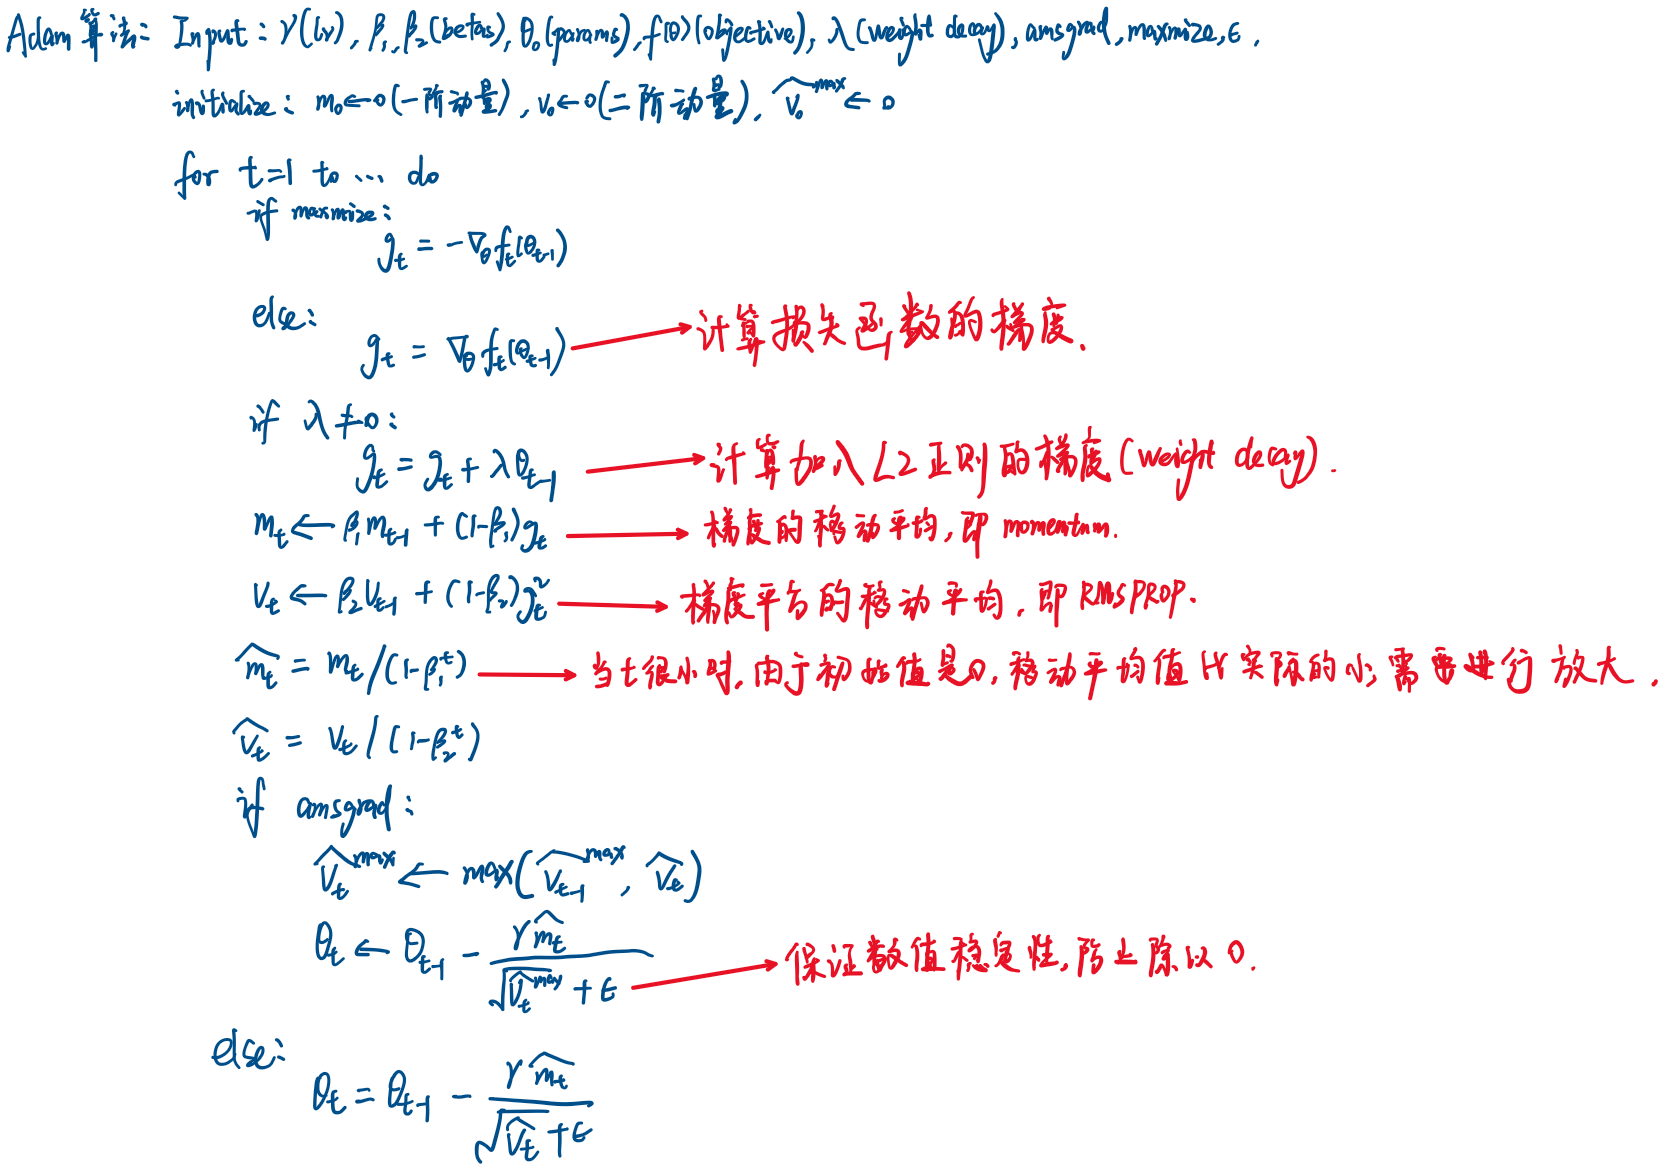 Adam算法: Input: γ(lr), β₁, β₂(betas), θ₀(params), f(θ)(objective), λ(weight decay), amsgrad, maxmize, ε.
initialize: m₀←0(一阶动量), v₀←0(二阶动量), v̂₀^max ← 0
for t=1 to ... do
if maxmize:
g_t = -∇_θ f_t(θ_{t-1})
else:
g_t = ∇_θ f_t(θ_{t-1}) → 计算损失函数的梯度.
if λ≠0:
g_t = g_t + λθ_{t-1} → 计算加入L2正则的梯度(weight decay).
m_t ← β₁m_{t-1} + (1-β₁)g_t → 梯度的移动平均,即momentum.
v_t ← β₂v_{t-1} + (1-β₂)g_t² → 梯度平方的移动平均,即RMSPROP.
m̂_t = m_t/(1-β₁^t) → 当t很小时,由于初始值是0,移动平均值比实际的小,需要进行放大.
v̂_t = v_t/(1-β₂^t)
if amsgrad:
v̂_t^max ← max(v̂_{t-1}^max, v̂_t)
θ_t ← θ_{t-1} - γm̂_t / (√(v̂_t^max) + ε) → 保证数值稳定性,防止除以0.
else:
θ_t = θ_{t-1} - γm̂_t / (√(v̂_t) + ε)